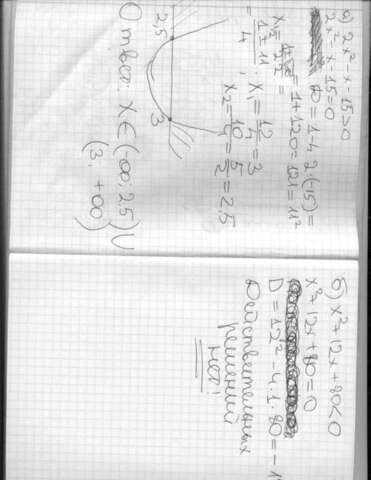 а) 2x² - x - 15 > 0
2x² - x - 15 = 0
D = 1 - 4 · 2 · (-15) =
= 1 + 120 = 121 = 11²
= 1 ± 11 / 4 ; x₁ = 12/4 = 3
x₂ = 10/4 = 5/2 = 2,5
2,5 3
Ответ: X ∈ (-∞; 2,5) ∪
(3; +∞)
б) x² + 12x + 80 < 0
x² + 12x + 80 = 0
D = 12² - 4 · 1 · 80 = - 1
Действительных
решений
нет!